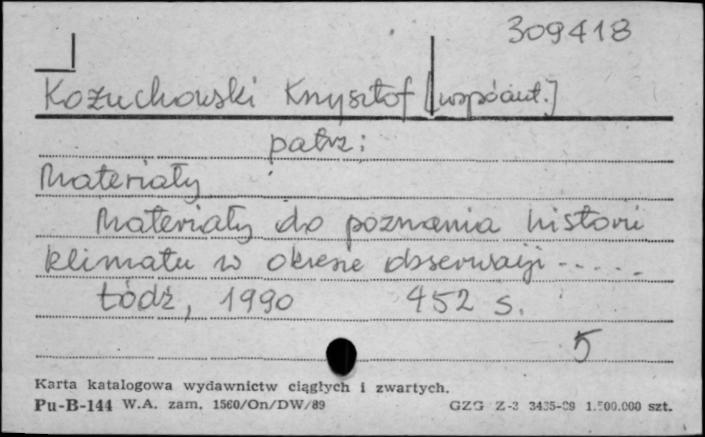 309418
Kożuchowski Krzysztof [współaut.]
patrz:
Materiały
Materiały do poznania historii
klimatu w okresie obserwacji -----
Łódź, 1990 452 s.
5
Karta katalogowa wydawnictw ciągłych i zwartych.
Pu-B-144 W.A. zam. 1560/On/DW/89 GZG Z-3 1.500.000 szt.